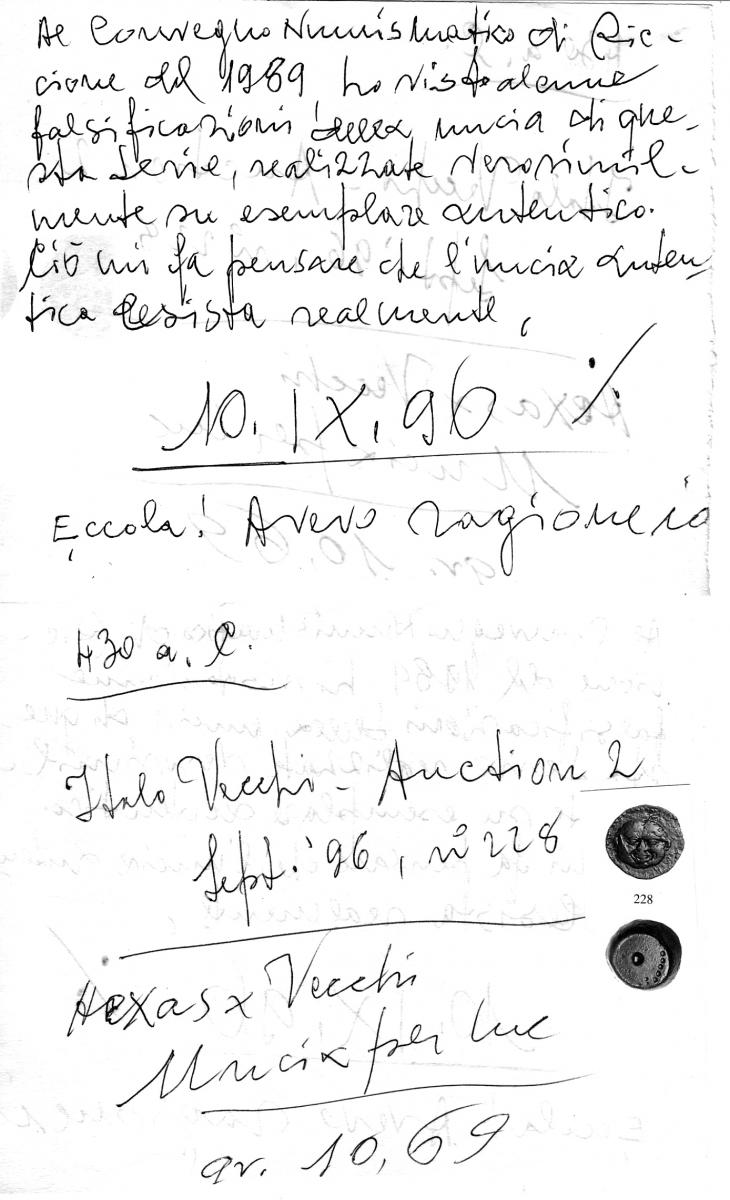 Al Convegno Numismatico di Ric-
cione del 1989 ho visto alcune
falsificazioni della uncia di que-
sta serie, realizzate verosimil-
mente su esemplare autentico.
Ciò mi fa pensare che l'uncia auten-
tica esista realmente.
10.IX.96 ./.
Eccola! Avevo ragione io
430 a.C.
Italo Vecchi - Auction 2
Sept. '96, n° 228
228
Hexas x Vecchi
Uncia per me
gr. 10,69